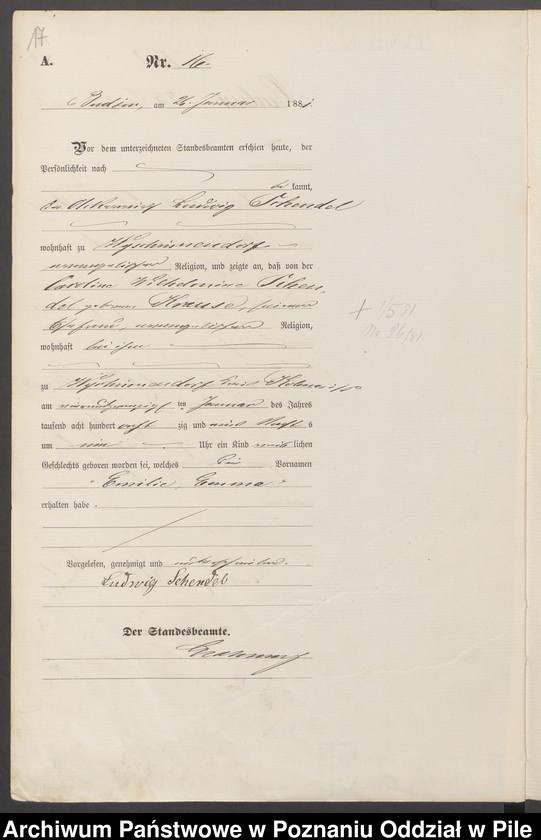 17
A.
Nr. 16.
Budsin, am 26. Januar 1881.
Vor dem unterzeichneten Standesbeamten erschien heute, der
Persönlichkeit nach
be kannt,
der Ludwig Schendel
wohnhaft zu Wyschinnendorf
evangelischer Religion, und zeigte an, daß von der
Caroline Wilhelmine Schen-
del geborene Krause, seiner
Ehefrau, evangelischer Religion,
wohnhaft bei ihm
zu Wyschinnendorf Kreis Kolmar i/P
am ten Januar des Jahres
tausend acht hundert acht zig und eins Nachts
um ein Uhr ein Kind weib lichen
Geschlechts geboren worden sei, welches die Vornamen
"Emilie, Emma"
erhalten habe.
Vorgelesen, genehmigt und unterschrieben.
Ludwig Schendel
Der Standesbeamte.
+ 1/5 81
No 26/81
Archiwum Państwowe w Poznaniu Oddział w Pile